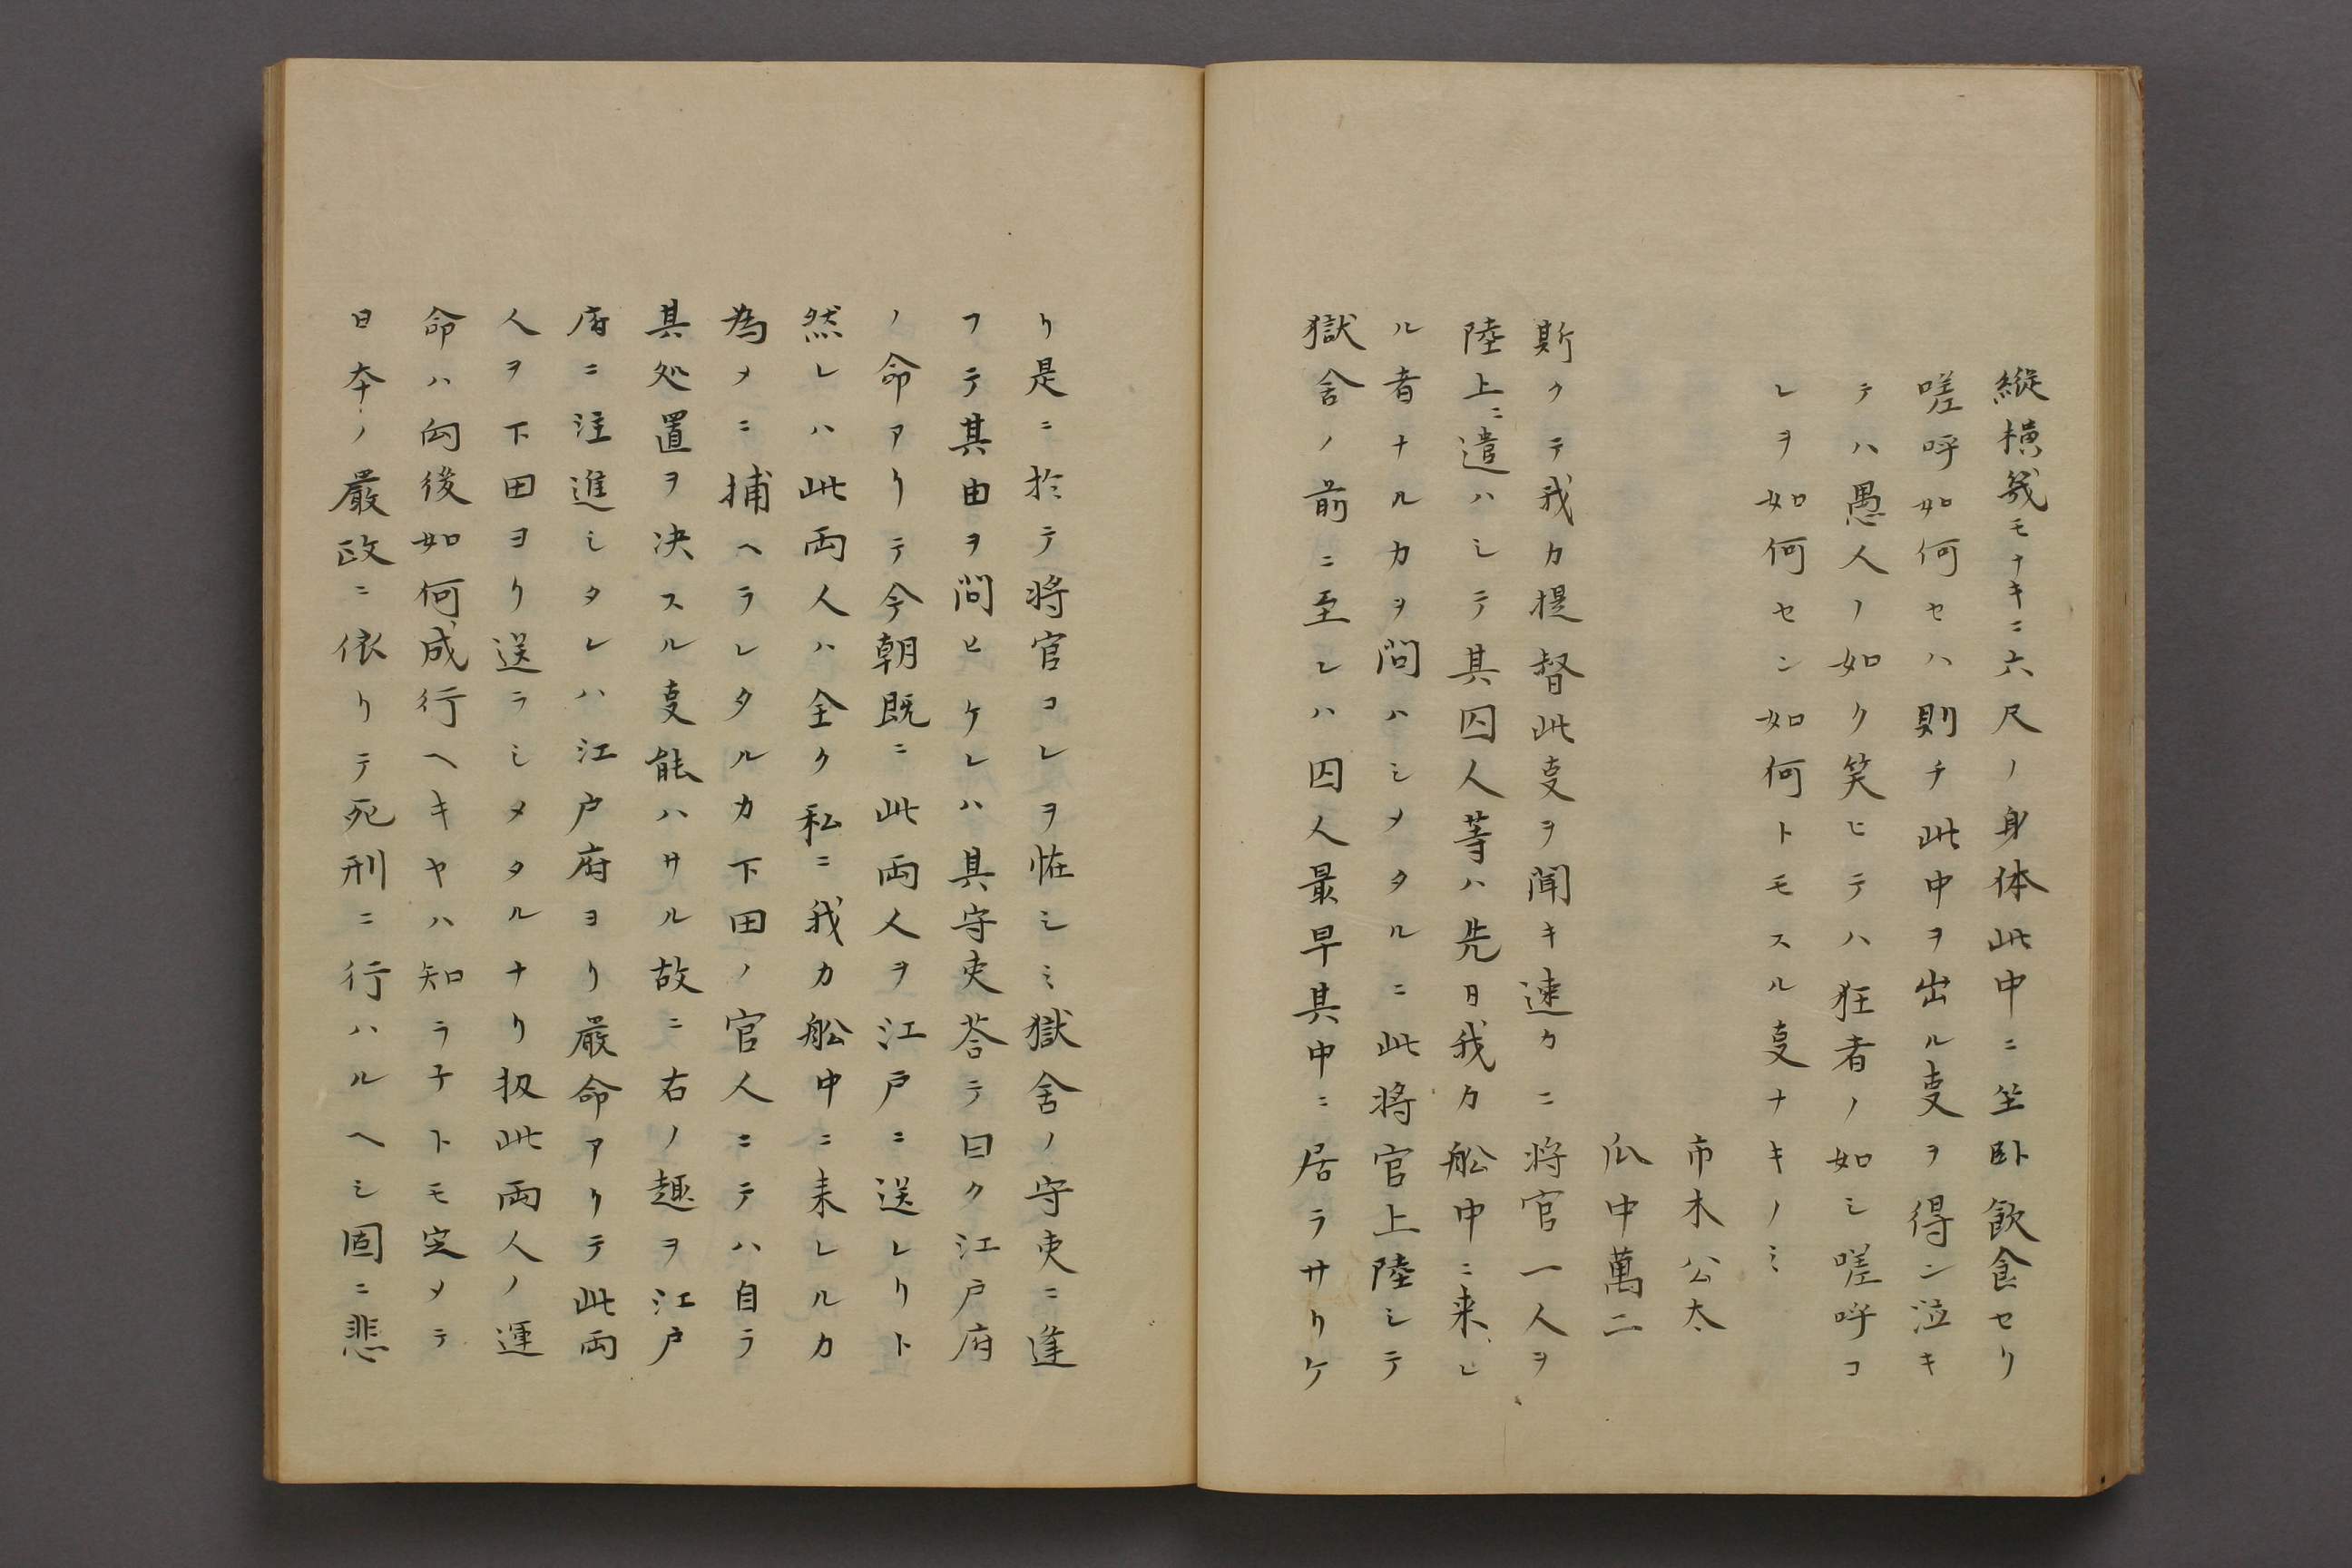 縦横幾モナキニ六尺ノ身体此中ニ坐臥飲食セリ
嗟呼如何セハ則チ此中ヲ出ル叓ヲ得ン泣キ
テハ愚人ノ如ク笑ヒテハ狂者ノ如シ嗟呼コ
レヲ如何セン如何トモスル叓ナキノミ
市木公太
瓜中萬二
斯クテ我カ提督此叓ヲ聞キ速カニ将官一人ヲ
陸上ニ遣ハシテ其囚人等ハ先日我カ舩中ニ来レ
ル者ナルカヲ問ハシメタルニ此将官上陸シテ
獄舎ノ前ニ至レハ囚人最早其中ニ居ラサリケ
リ是ニ於テ将官コレヲ恠シミ獄舎ノ守吏ニ逢
フテ其由ヲ問ヒケレハ其守吏荅テ曰ク江戸府
ノ命アリテ今朝既ニ此両人ヲ江戸ニ送レリト
然レハ此両人ハ全ク私ニ我カ舩中ニ来レルカ
為メニ捕ヘラレタルカ下田ノ官人ニテハ自ラ
其処置ヲ决スル叓能ハサル故ニ右ノ趣ヲ江戸
府ニ注進シタレハ江戸府ヨリ厳命アリテ此両
人ヲ下田ヨリ送ラシメタルナリ扨此両人ノ運
命ハ向後如何成行ヘキヤハ知ラ子トモ定メテ
日本ノ厳政ニ依リテ死刑ニ行ハルヘシ固ニ悲